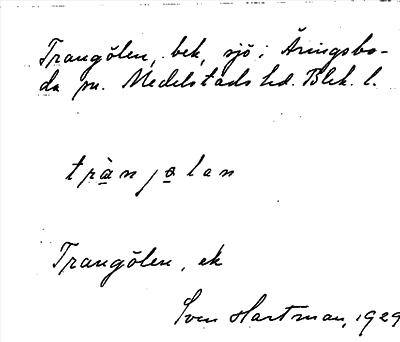 Trangölen, bek, sjö i Äringsbo-
da sn. Medelstads hd. Blek. l.
trànjølan
Trangölen, ek
Sven Hartman, 1929